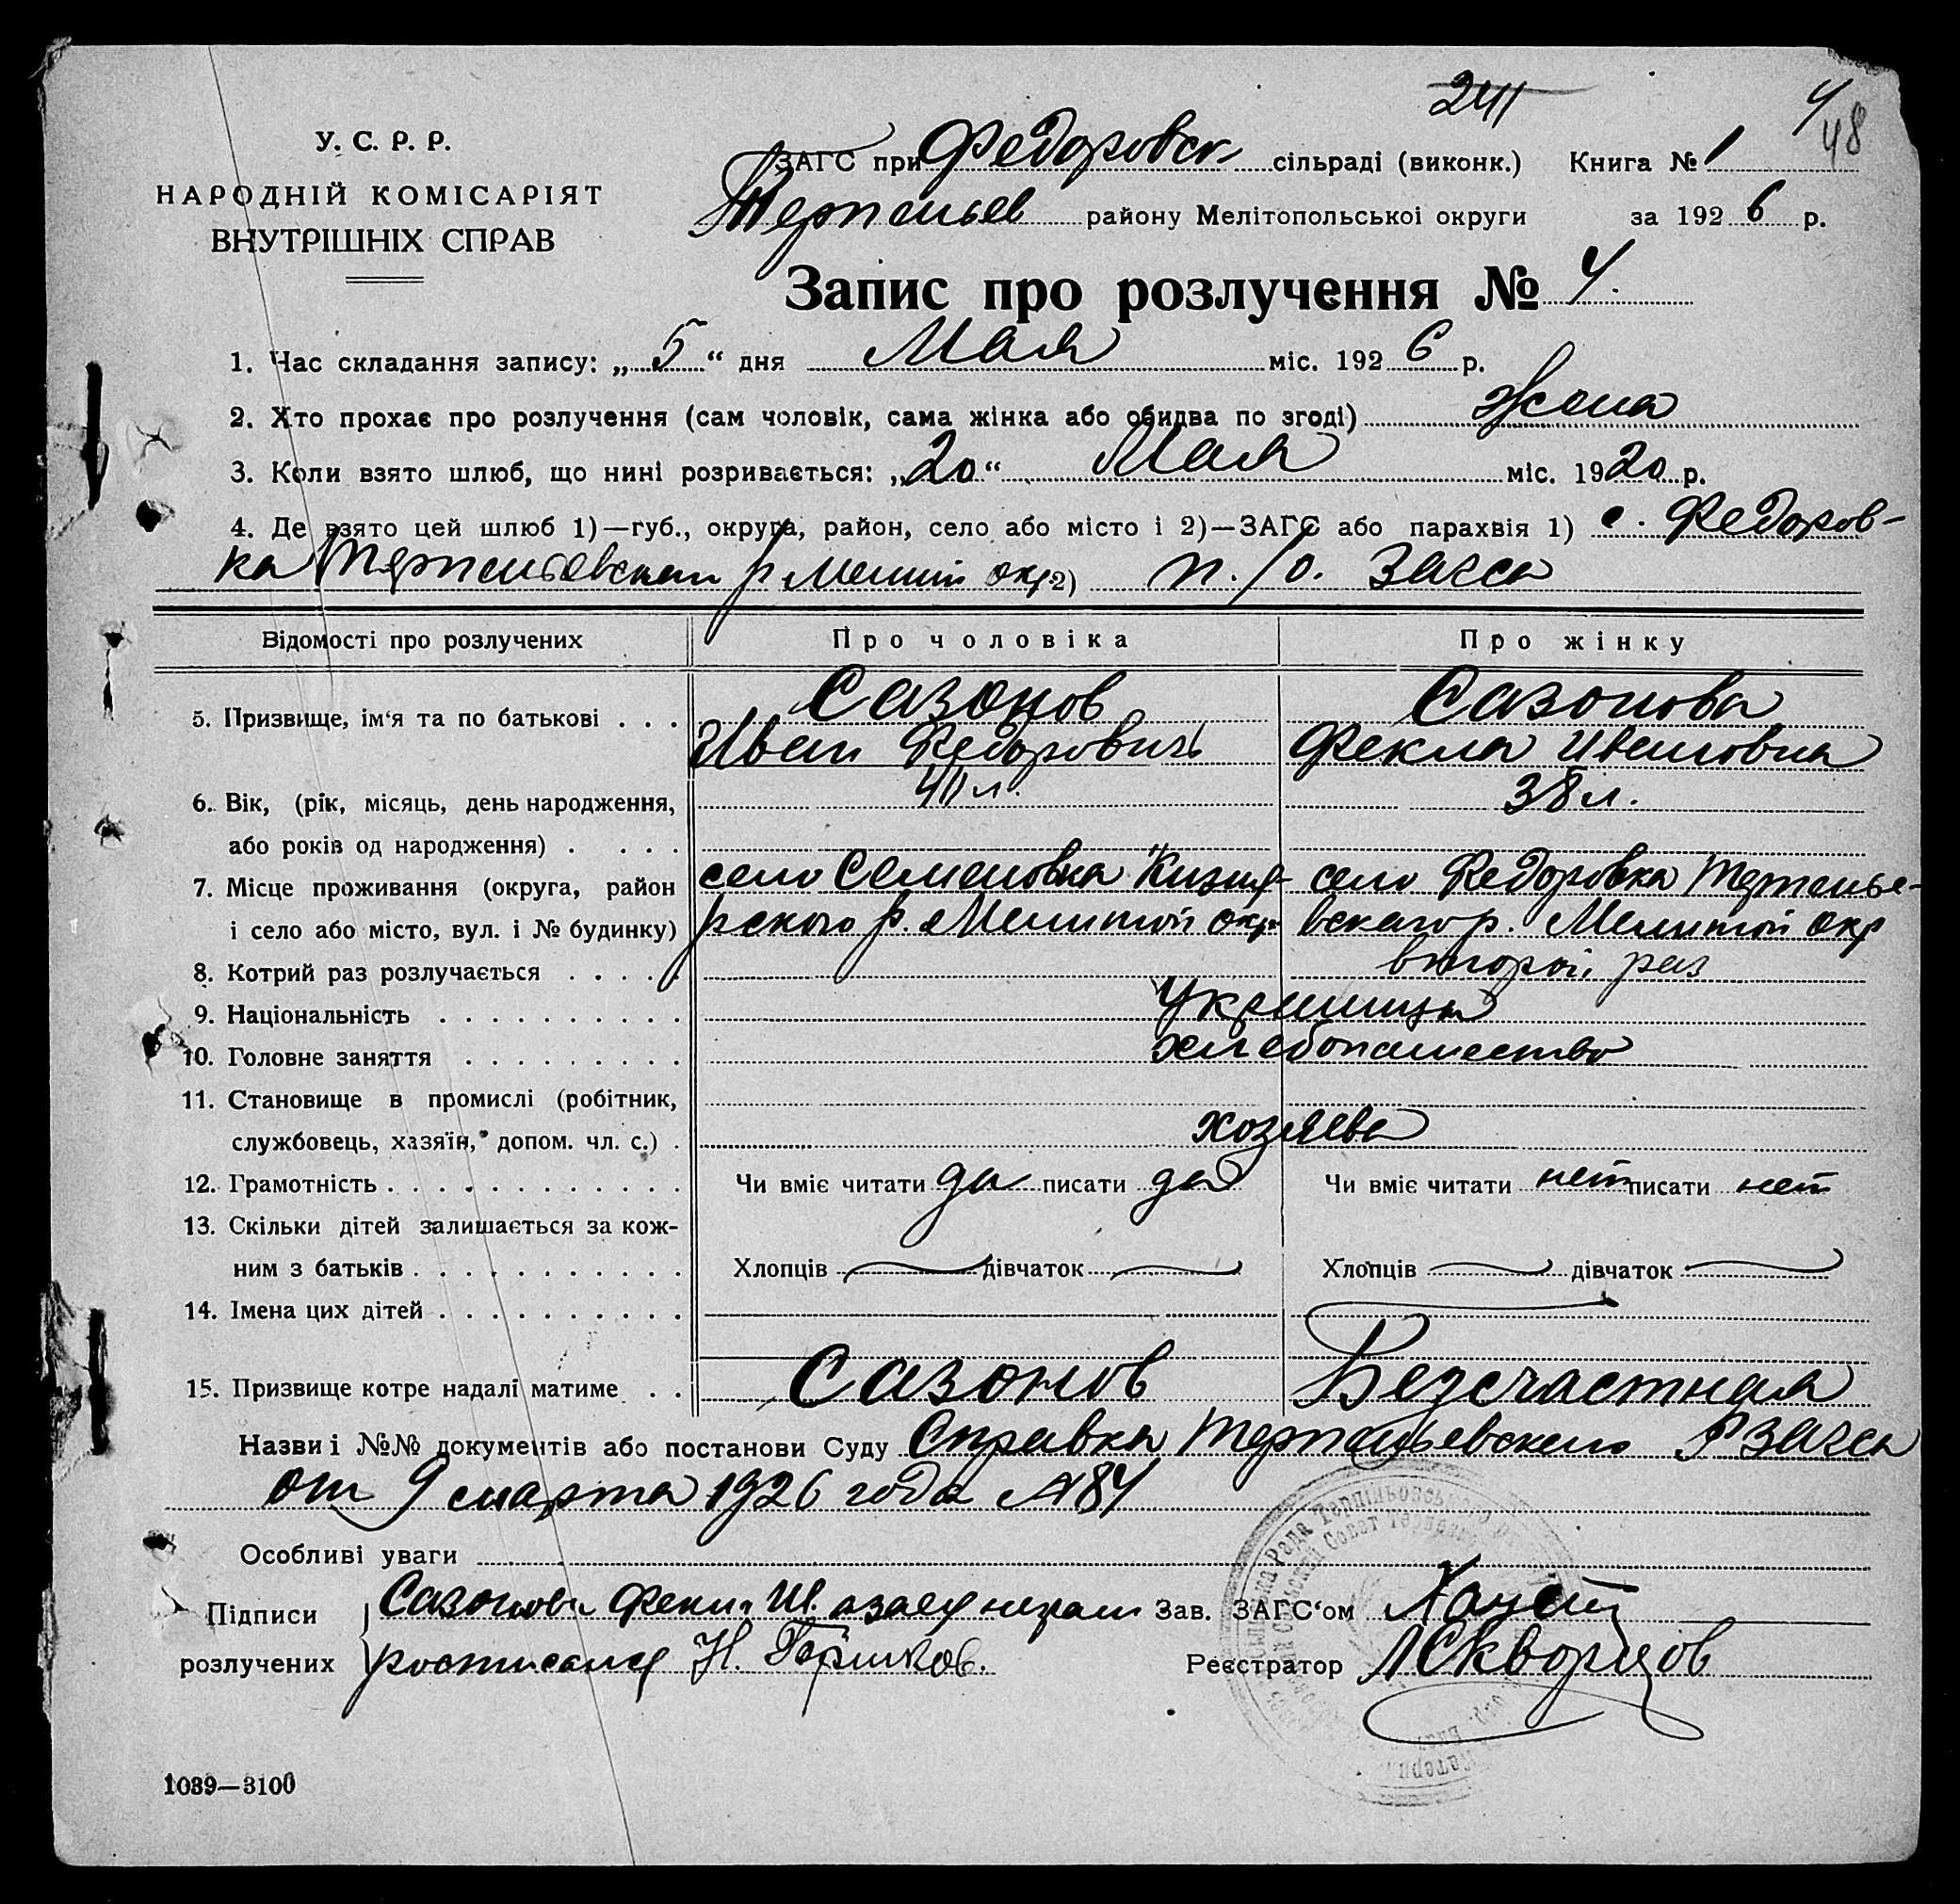 241
4
48
У. С. Р. Р.
НАРОДНІЙ КОМІСАРІЯТ
ВНУТРІШНІХ СПРАВ
ЗАГС при Федоровск сільраді (виконк.) Книга № 1
района Мелітопольської округи за 1926 р.
Запис про розлучення № 4.
1. Час складання запису: „5“ дня Мая міс. 1926 р.
2. Хто прохає про розлучення (сам чоловік, сама жінка або обидва по згоді) жена
3. Коли взято шлюб, що нині розривається: „20“ Мая міс. 1920 р.
4. Де взято цей шлюб 1)—губ., округа, район, село або місто і 2)—ЗАГС або парахвія 1) с. Федоров-
ка р Мелит окр. 2) п./о. Загса
Відомості про розлучених Про чоловіка Про жінку
5. Призвище, ім‘я та по батькові . . . Сазонов Сазонова
Иван Федорович Фекла Ивановна
6. Вік, (рік, місяць, день народження, 38 л.
або років од народження) . . . .
7. Місце проживання (округа, район село Семеновка Кизия- село Федоровка Терпенье-
і село або місто, вул. і № будинку) рского р. Мелитоп окр. вскаго р. Мелитоп окр
8. Котрий раз розлучається . . . . . второй раз
9. Національність . . . . . . . . . . Украинцы
10. Головне заняття . . . . . . . . хлебопашество
11. Становище в промислі (робітник,
службовець, хазяїн, допом. чл. с.) . хозяева
12. Грамотність . . . . . . . . . . . . Чи вміє читати да писати да Чи вміє читати нет писати нет
13. Скільки дітей залишається за кож-
ним з батьків . . . . . . . . . . . Хлопців дівчаток Хлопців дівчаток
14. Імена цих дітей . . . . . . . . . .
15. Призвище котре надалі матиме . . Сазонов Безсчастная
Назви і №№ документів або постанови Суду Справка Терпеньевского РЗАГСа
от 9 марта 1926 года №84
Особливі уваги
Підписи Сазонова Фекл. Ив. а за ея неграм Зав. ЗАГС‘ом
розлучених росписался Н. Реєстратор Скворцов
1039—3100